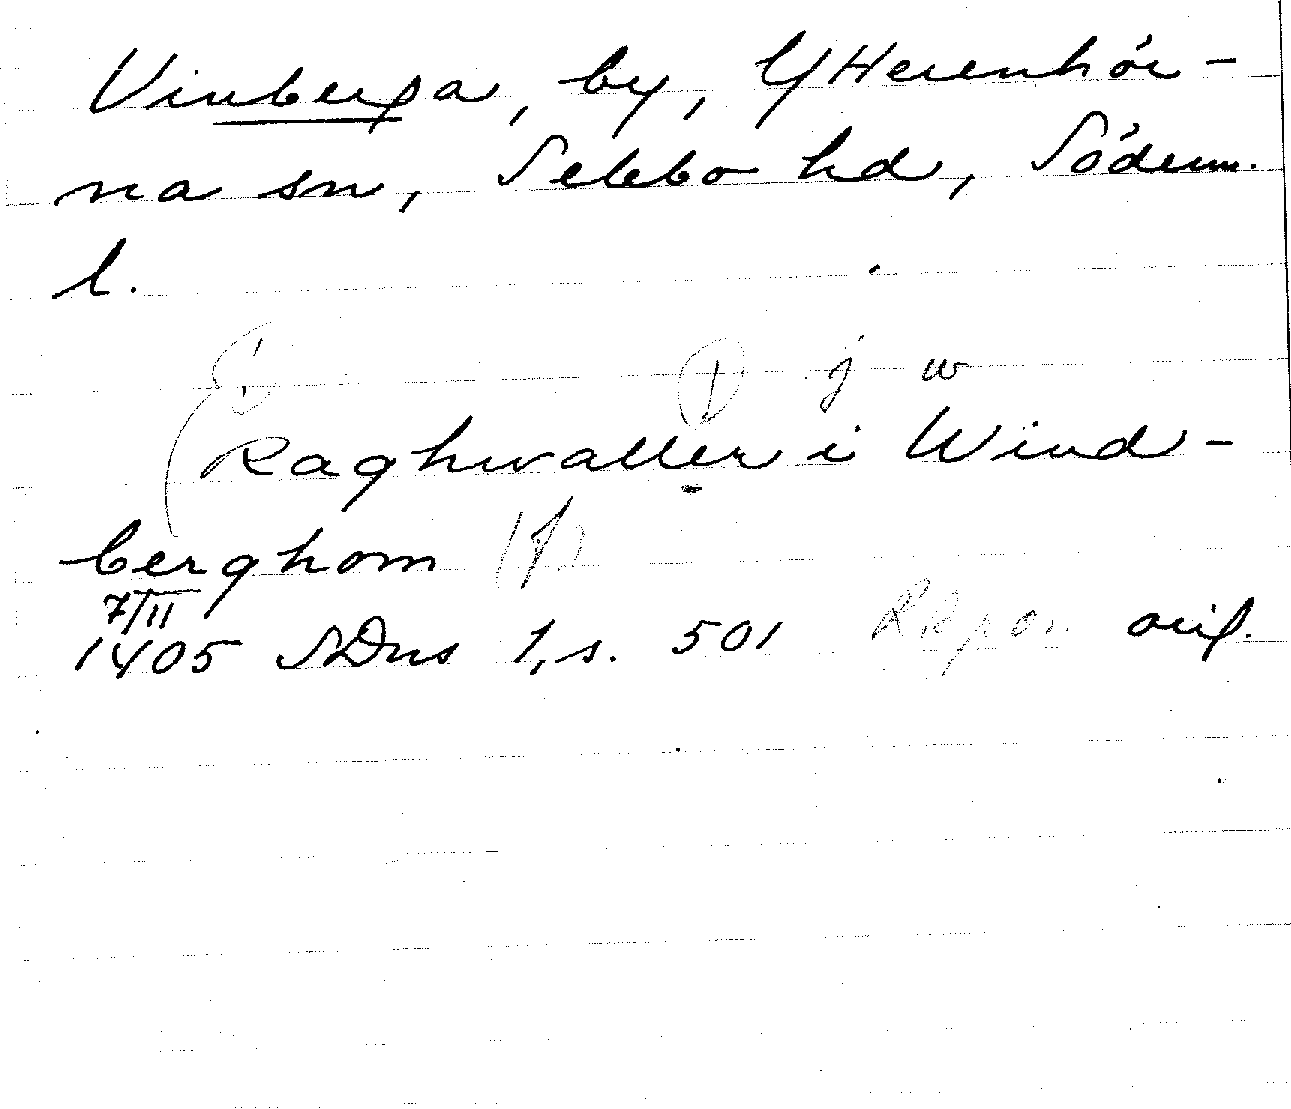 Vinberga, by, Ytterenhör-
na sn, Selebo hd, Söderm.
l.
j w
Raghwaller i Wind-
berghom
7/II
1405 SDns 1, s. 501 orig.